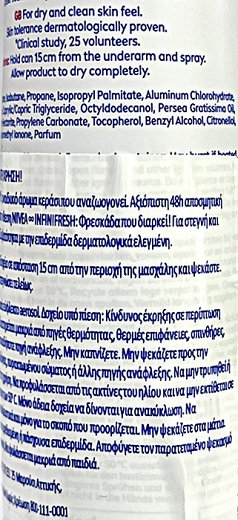 GB For dry and clean skin feel.
Skin tolerance dermatologically proven.
*Clinical study, 25 volunteers.
Hold can 15cm from the underarm and spray.
Allow product to dry completely.
Isobutane, Propane, Isopropyl Palmitate, Aluminum Chlorohydrate,
Caprylic/Capric Triglyceride, Octyldodecanol, Persea Gratissima Oil,
Propylene Carbonate, Tocopherol, Benzyl Alcohol, Citronellol,
Ionone, Parfum
άρωμα κεράσι που αναζωογονεί. Αξιόπιστη 48h αποσμητική
NIVEA ∞ INFINIFRESH: Φρεσκάδα που διαρκεί! Για στεγνή και
με την επιδερμίδα δερματολογικά ελεγμένη.
σε απόσταση 15 cm από την περιοχή της μασχάλης και ψεκάστε.
τελείως.
aerosol. Δοχείο υπό πίεση: Κίνδυνος έκρηξης σε περίπτωση
μακριά από πηγές θερμότητας, θερμές επιφάνειες, σπινθήρες,
πηγή ανάφλεξης. Μην καπνίζετε. Μην ψεκάζετε προς την
σώματος ή άλλης πηγής ανάφλεξης. Να μην τρυπηθεί ή
Να προφυλάσσεται από τις ακτίνες του ηλίου και να μην εκτίθεται σε
Μόνο άδεια δοχεία να δίνονται για ανακύκλωση. Να
μόνο για το σκοπό που προορίζεται. Μην ψεκάζετε στα μάτια.
ή πάσχουσα επιδερμίδα. Αποφύγετε τον παρατεταμένο ψεκασμό
μακριά από παιδιά.
Μαρούσι Αττικής,
801-111-0001